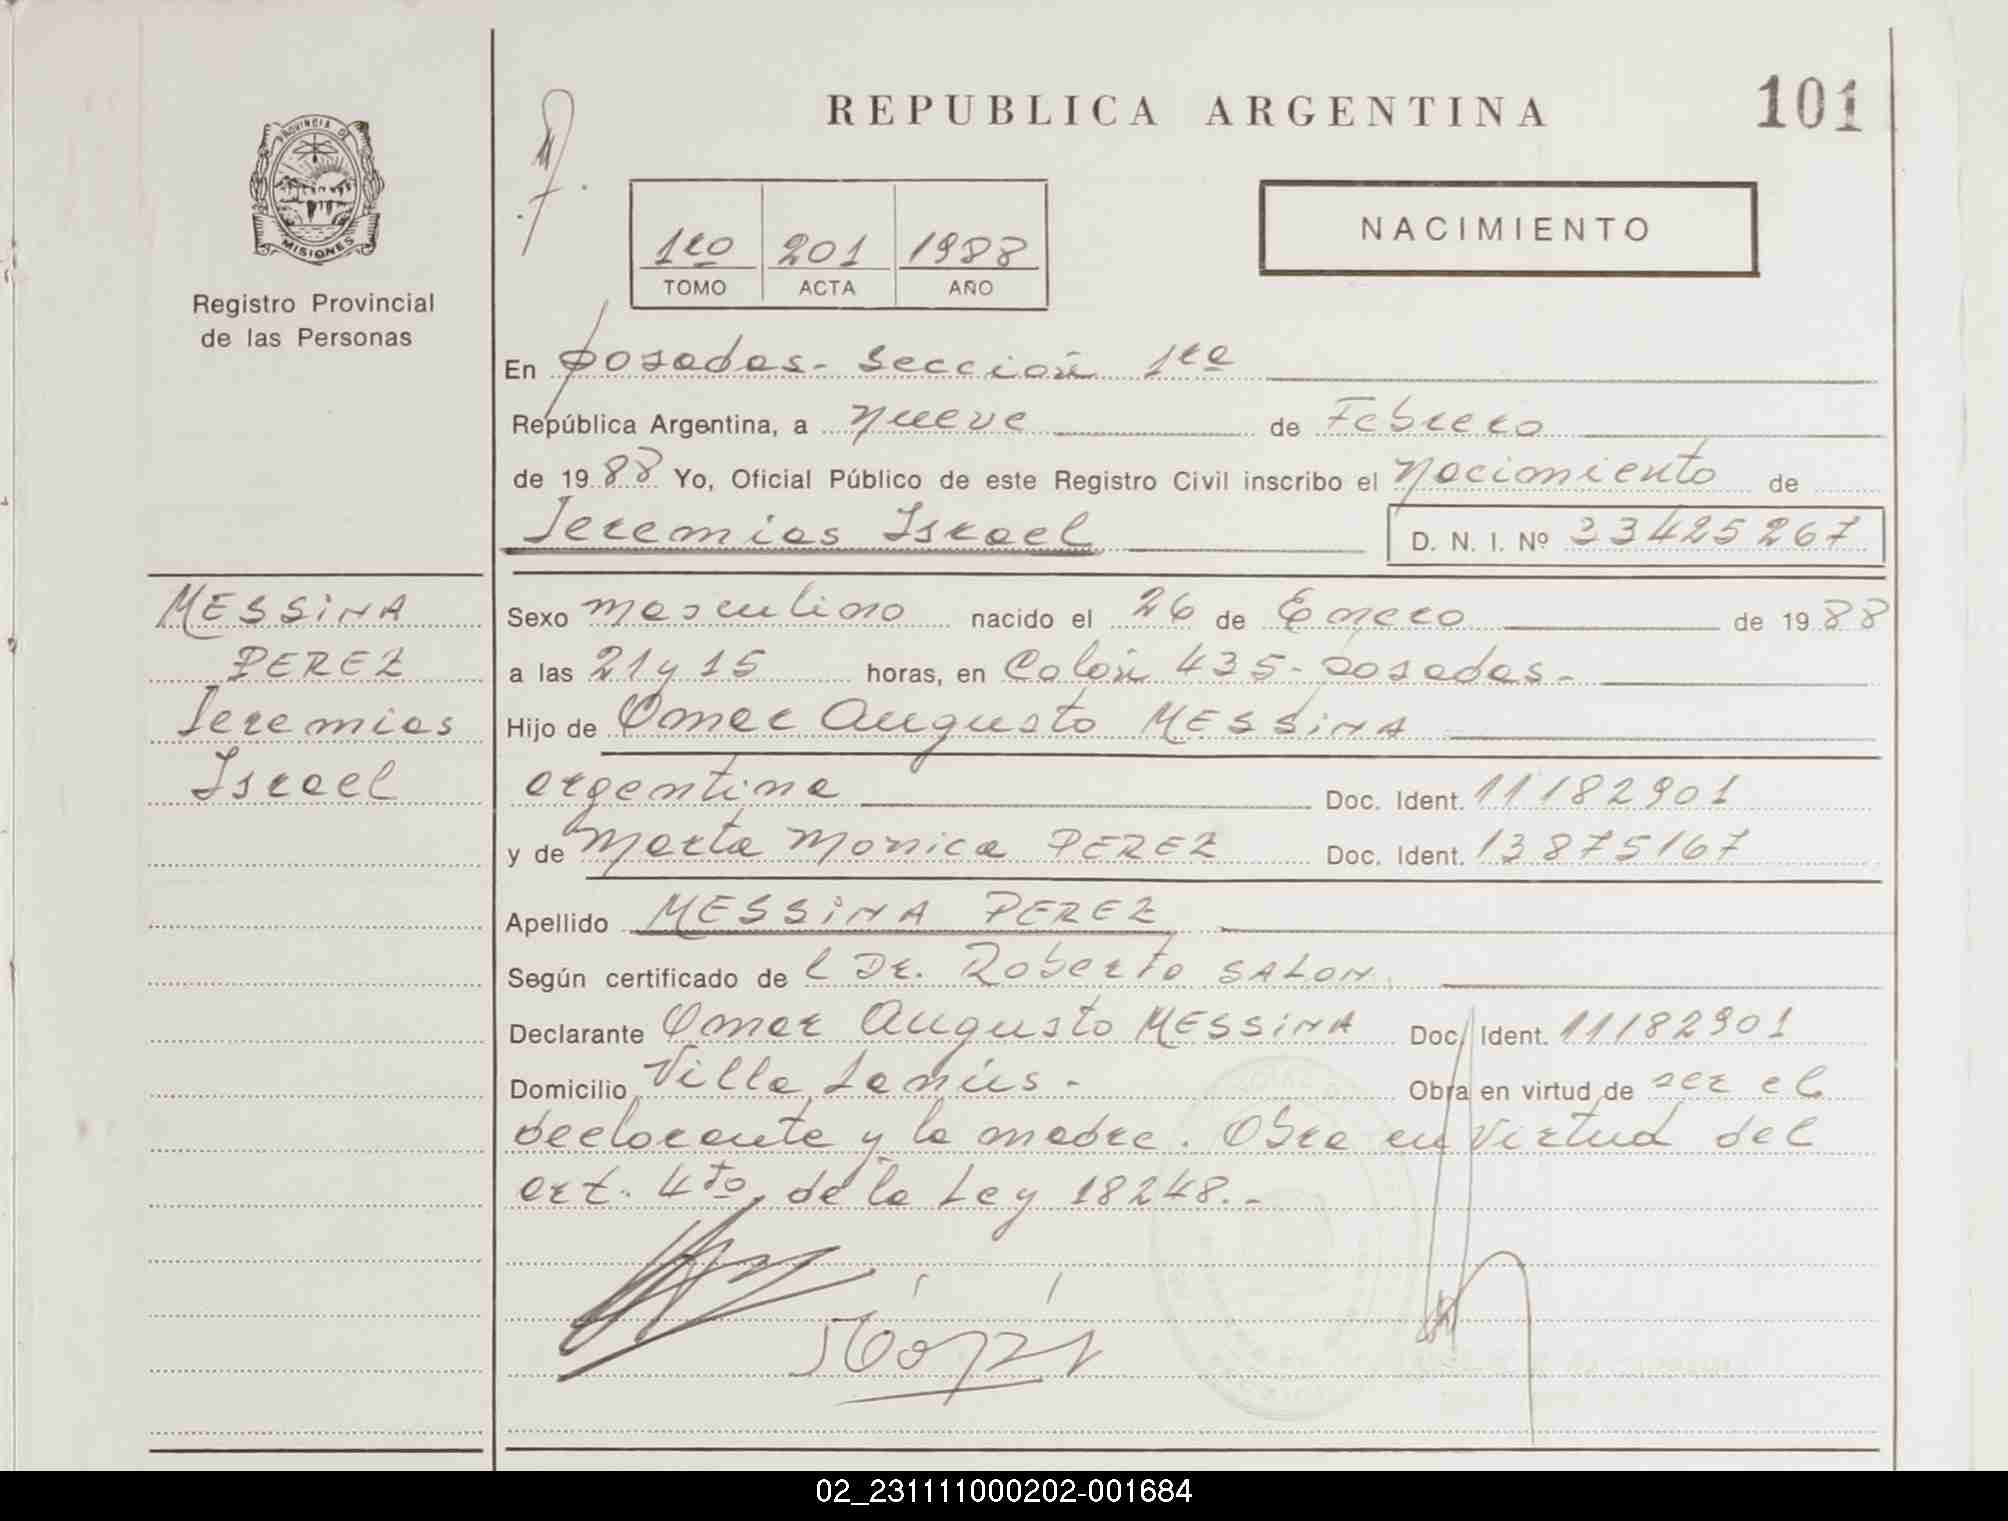 REPUBLICA ARGENTINA
101
PROVINCIA D
MISIONES
Registro Provincial
de las Personas
1ro 201 1988
TOMO ACTA AÑO
NACIMIENTO
En posadas- Sección 1ra
República Argentina, a nueve de Febrero
de 19 88 Yo, Oficial Público de este Registro Civil inscribo el nacimiento de
Jeremias Israel D. N. I. Nº 33425267
MESSiNA
PEREZ
Jeremias
Israel
Sexo masculino nacido el 26 de Enero de 19 88
a las 21 y 15 horas, en Colón 435- posadas-
Hijo de Omar Augusto MESSiNA
argentina Doc. Ident. 11182901
y de Marta Monica PEREZ Doc. Ident. 13875167
Apellido MESSiNA PEREZ
Según certificado de l Dr. Roberto SALON.
Declarante Omar Augusto MESSiNA Doc. Ident. 11182901
Domicilio Villa Lanús- Obra en virtud de ser el
declarante y la madre. Obra en virtud del
art. 4to, de la Ley 18248.-
02_231111000202-001684